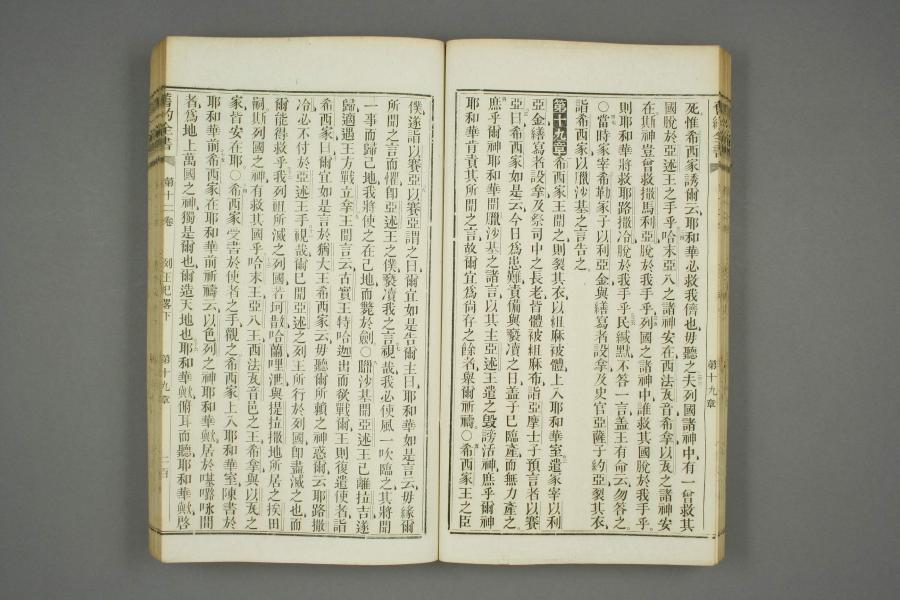 第十九章
死惟希西家誘爾云耶和華必救我儕也毋聽之夫列國諸神中有一曾救其
國脫於亞述王之手乎哈末亞八之諸神安在西法瓦音希拿以瓦之諸神安
在斯神豈曾救撒馬利亞脫於我手乎列國之諸神中誰救其國脫於我手乎
則耶和華將救耶路撒冷脫於我手乎民緘默不答一言蓋王有命云勿答之
○當時家宰希勒家子以利亞金與繕寫者設拿及史官亞薩子約亞裂其衣
詣希西家以臘沙基之言告之
第十九章希西家王聞之則裂其衣以組麻被體上入耶和華室遣家宰以利
亞金繕寫者設拿及祭司中之長老皆體被組麻布詣亞摩士子預言者以賽
亞曰希西家如是云今日為患難責備與褻瀆之日蓋子已臨產而無力產之
庶乎爾神耶和華聞臘沙基之諸言以其主亞述王遣之毀謗活神庶乎爾神
耶和華肯責其所聞之言故爾宜為尙存之餘者與爾祈禱○希西家王之臣
僕遂詣以賽亞以賽亞謂之曰爾宜如是告爾主曰耶和華如是言云毋緣爾
所聞之言而懼即亞述王之僕褻瀆我之言視哉我必使風一吹臨之其將聞
一事而歸己地我將使之在己地而斃於劍○臘沙基聞亞述王已離拉吉遂
歸適遇王方戰立拿王聞言云古實王特哈迦出而欲戰爾王則復遣使者詣
希西家曰爾宜如是言於猶大王希西家云毋聽爾所賴之神惑爾云耶路撒
冷必不付於亞述王手視哉爾已聞亞述之列王所行於列國即盡滅之也而
爾能得救乎我列祖所滅之列國若坷散哈蘭哩泄與提拉撒地所居之挨田
嗣斯列國之神有救其國乎哈末王亞八王西法瓦音邑之王希拿與以瓦之
家皆安在耶○希西家受書於使者之手觀之希西家上入耶和華室陳書於
耶和華前希西家在耶和華前祈禱云以色列之神耶和華歟居於𠼻𡀔咏間
者為地上萬國之神獨是爾也爾造天地也耶和華歟俯耳而聽耶和華歟啓
舊約全書
第十二卷
列王紀畧下
第十九章
二百